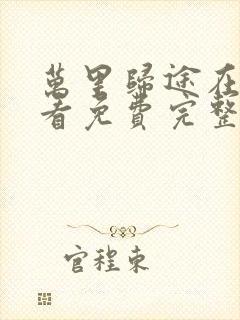 萬里歸途在
看免費完整
官程東